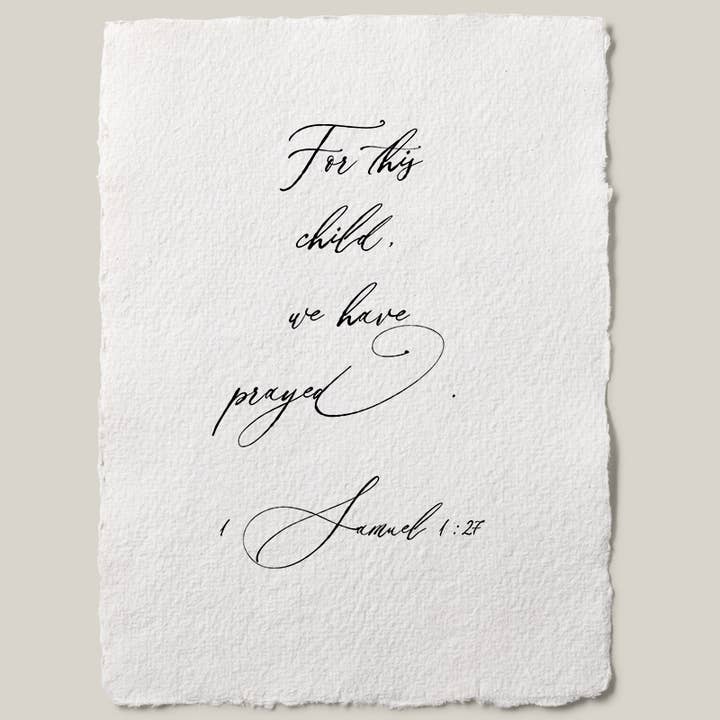 For this
child,
we have
prayed .
1 Samuel 1:27